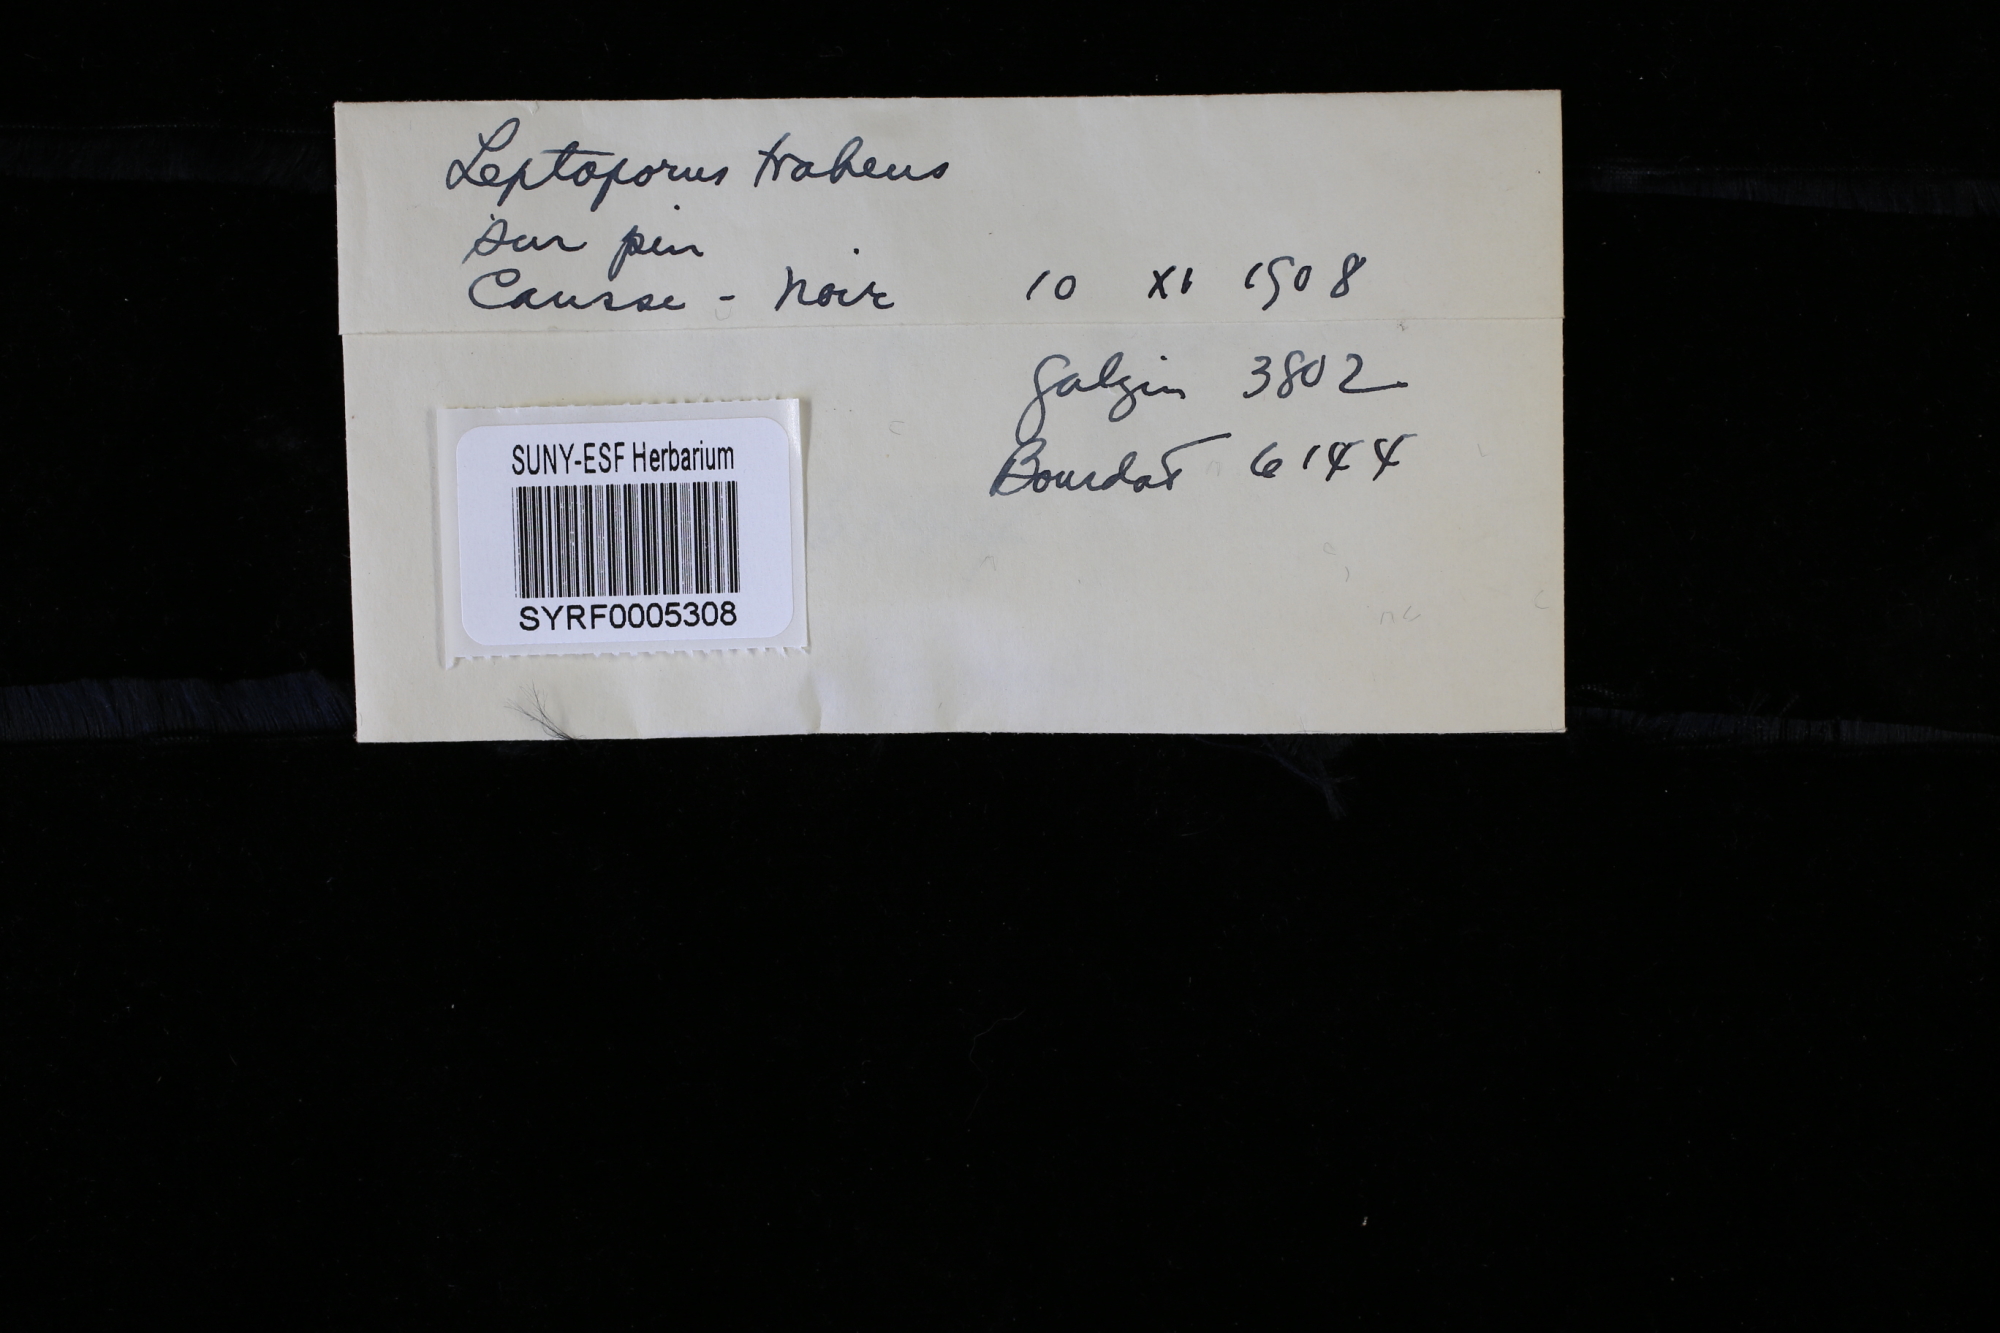 Leptoporus trabeus
sur pin
Causse - Noir 10 XI 1908
Galzin 3802
Bourdot 6144
SUNY-ESF Herbarium
SYRF0005308